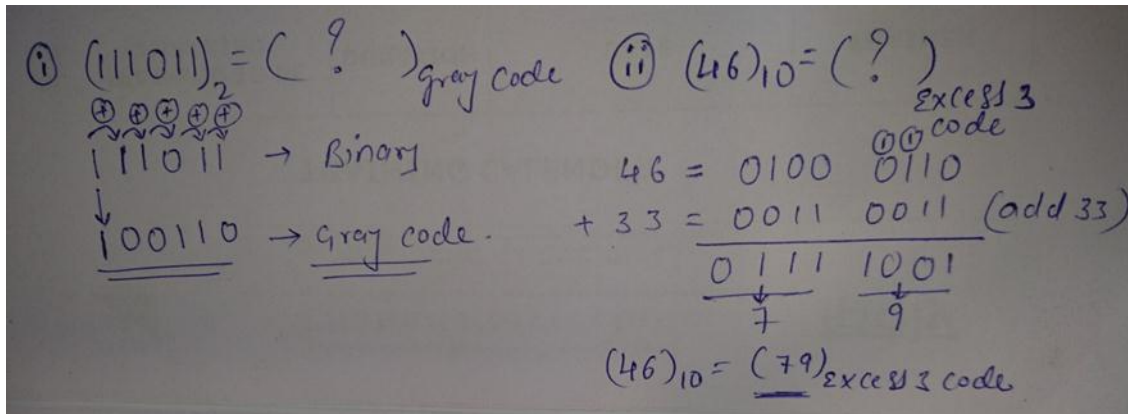 (i) (111011)₂ = ( ? ) gray code
⊕ ⊕ ⊕ ⊕ ⊕
111011 → Binary
↓
100110 → Gray code.
(ii) (46)₁₀ = ( ? ) Excess 3 code
① ①
46 = 0100 0110
+ 33 = 0011 0011 (add 33)
0111 1001
↓ ↓
7 9
(46)₁₀ = (79) Excess 3 code